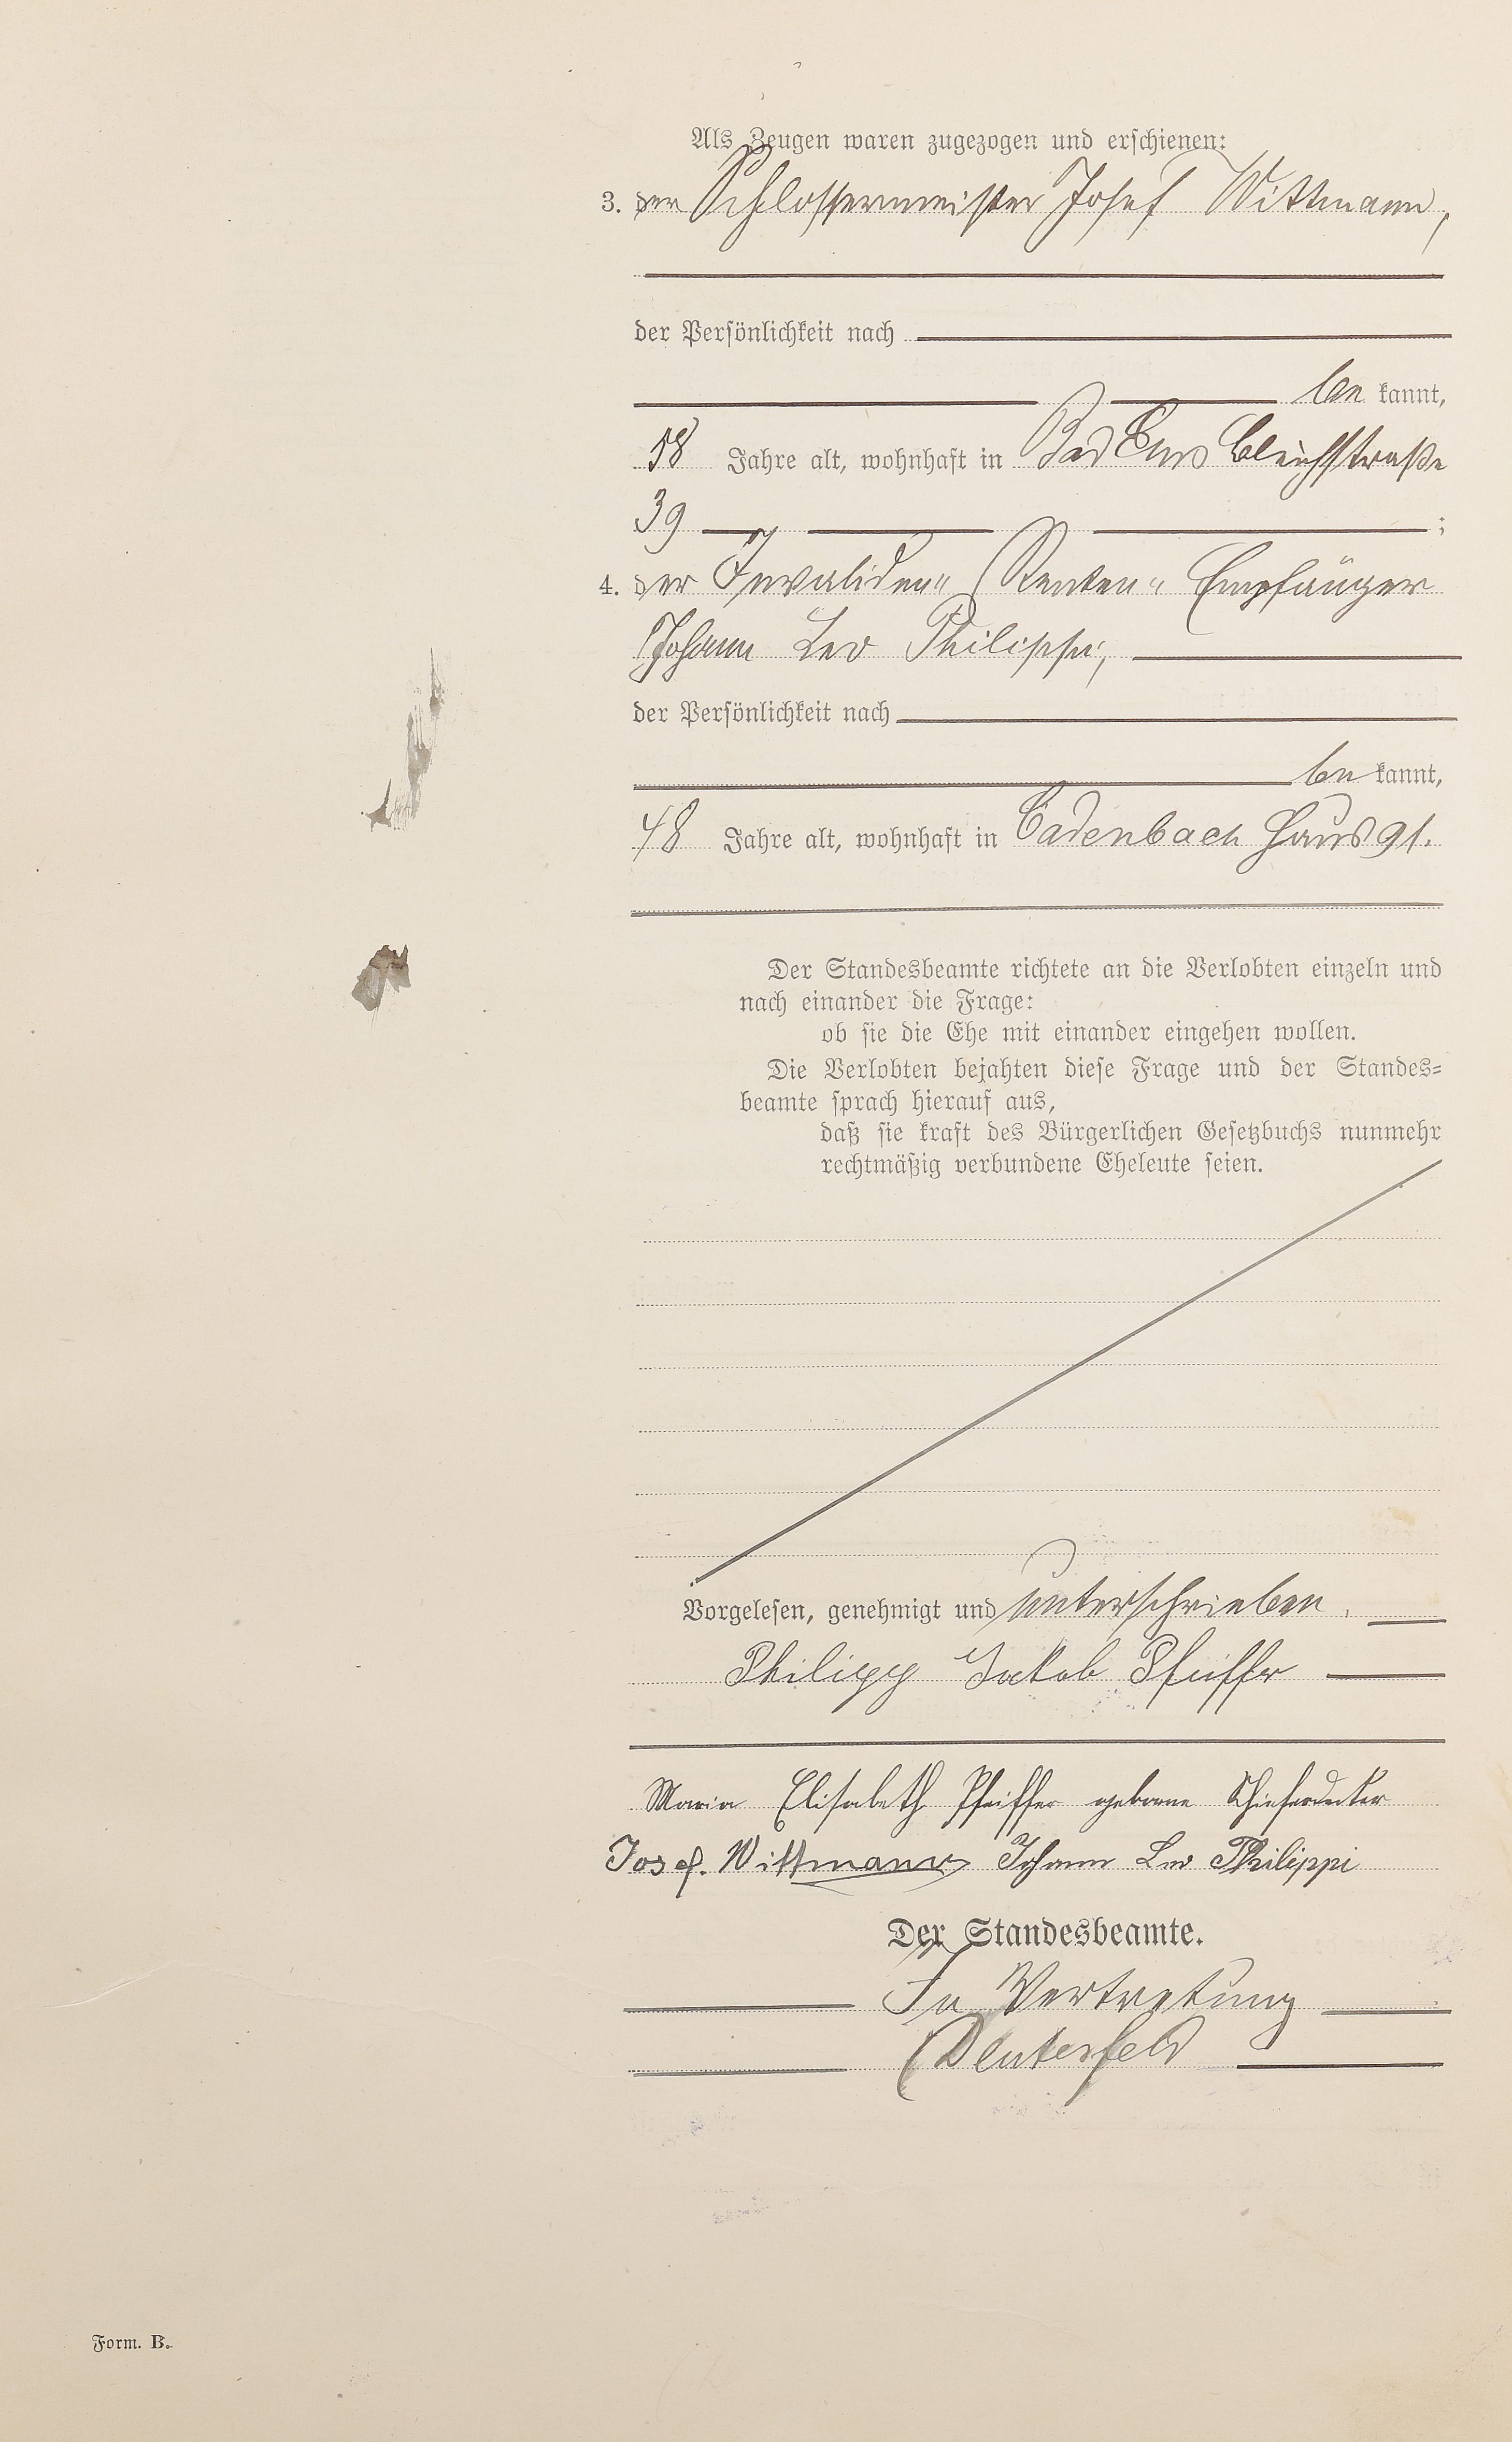 Als Zeugen waren zugezogen und erschienen:
3. der Schlossermeister Josef Wittmann,
der Persönlichkeit nach
be kannt,
58 Jahre alt, wohnhaft in Bad Ems Bleichstraße
39 ;
4. der Invaliden- Renten- Empfänger
Johann Leo Philippi,
der Persönlichkeit nach
be kannt,
48 Jahre alt, wohnhaft in Cadenbach Haus 91.
Der Standesbeamte richtete an die Verlobten einzeln und
nach einander die Frage:
ob sie die Ehe mit einander eingehen wollen.
Die Verlobten bejahten diese Frage und der Standes-
beamte sprach hierauf aus,
daß sie kraft des Bürgerlichen Gesetzbuchs nunmehr
rechtmäßig verbundene Eheleute seien.
Vorgelesen, genehmigt und unterschrieben.
Philipp Jakob Pfeiffer
Maria Elisabeth Pfeiffer geborne Schieferdecker
Josef. Wittmann Johann Leo Philippi
Der Standesbeamte.
In Vertretung
Form. B.